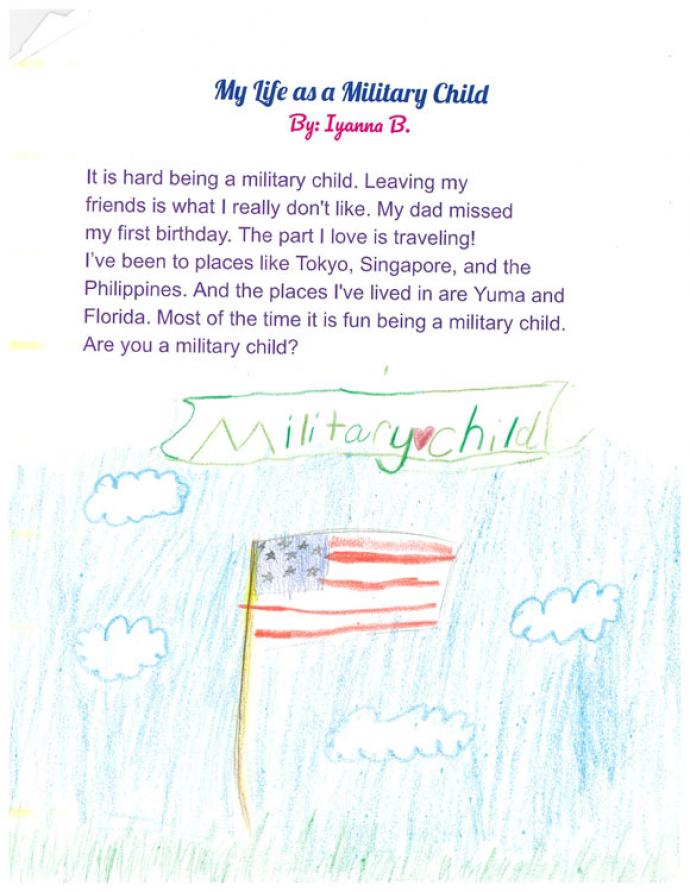 My Life as a Military Child
By: Iyanna B.
It is hard being a military child. Leaving my
friends is what I really don't like. My dad missed
my first birthday. The part I love is traveling!
I've been to places like Tokyo, Singapore, and the
Philippines. And the places I've lived in are Yuma and
Florida. Most of the time it is fun being a military child.
Are you a military child?
Military child